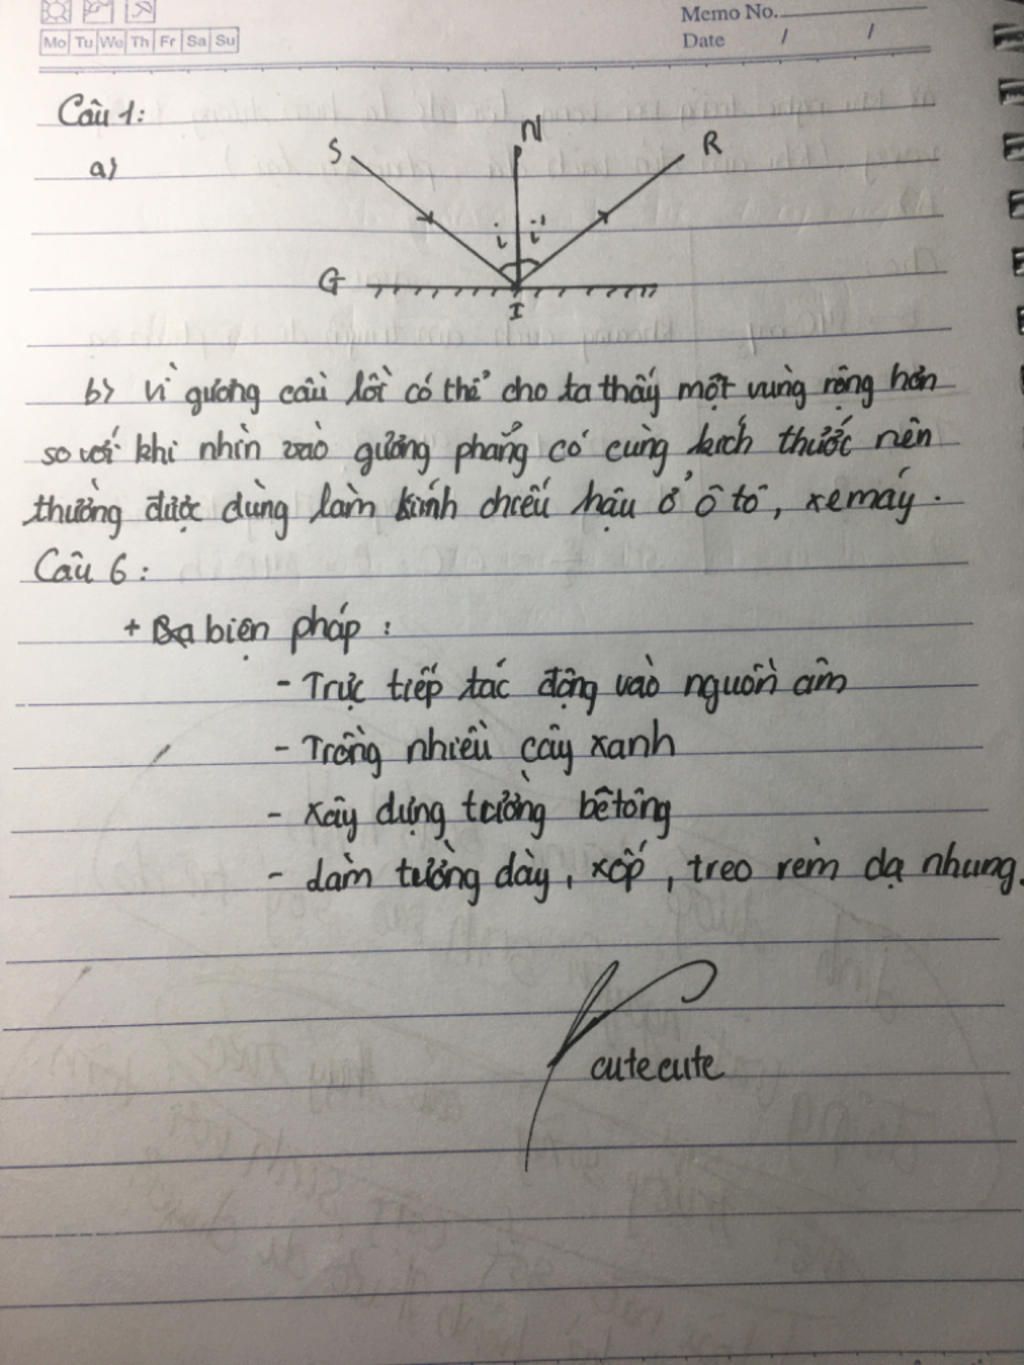 Memo No.
Mo Tu We Th Fr Sa Su
Date / /
Câu 1:
a)
S N R
i i'
G
I
b) Vì gương cầu lồi có thể cho ta thấy một vùng rộng hơn
so với khi nhìn vào gương phẳng có cùng kích thước nên
thường được dùng làm kính chiếu hậu ở ô tô, xe máy.
Câu 6:
+ Ba biện pháp:
- Trực tiếp tác động vào nguồn âm
- Trồng nhiều cây xanh
- Xây dựng tường bêtông
- Làm tường dày, xốp, treo rèm dạ nhung.
cutecute